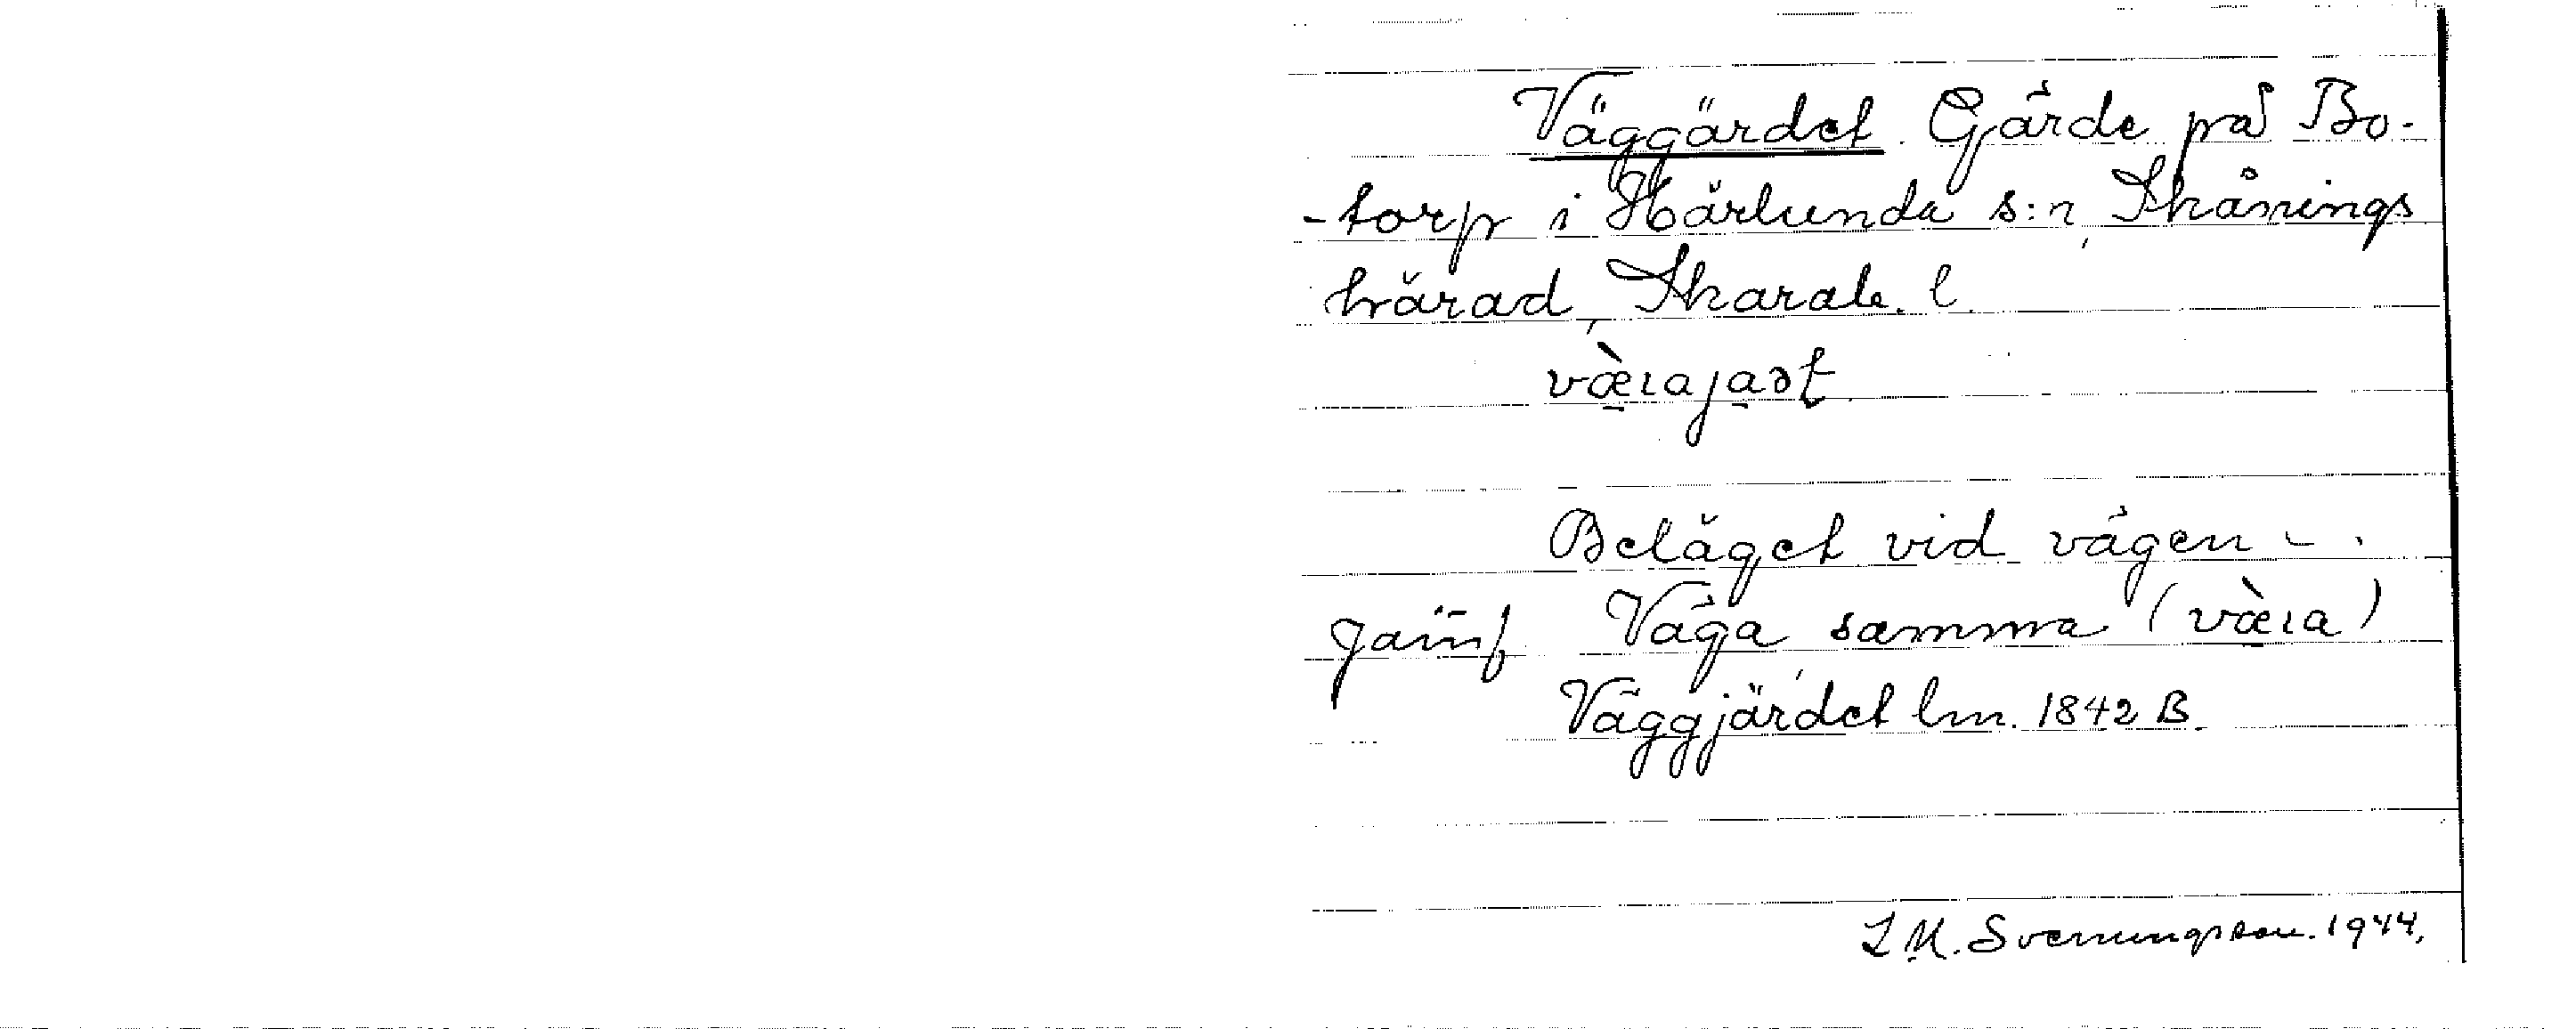 Väggärdet. Gärde på Bo-
-torp i Härlunda s:n, Skånings
härad, Skarab. l.
Beläget vid vägen - .
Jämf Väga, samma (væ̀ıa)
Väggjärdet lm. 1842 B.
L M. Svenungsson. 1944.